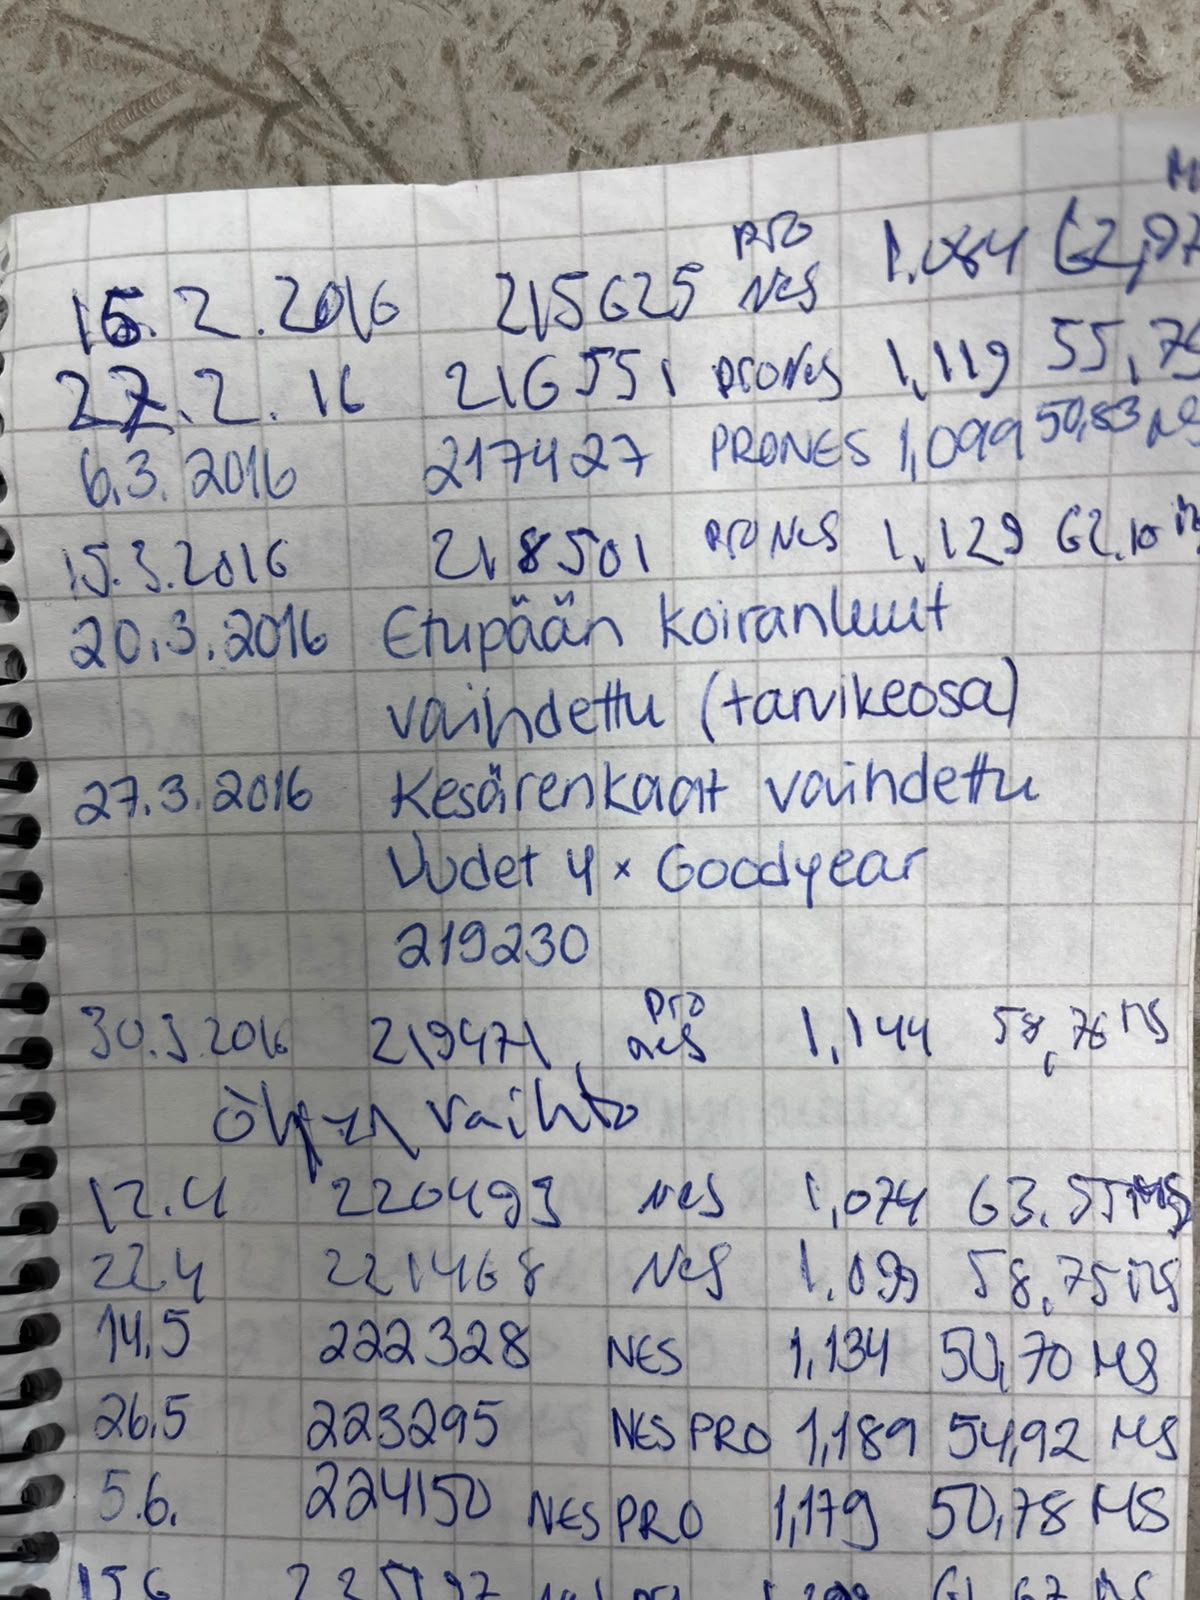 15.2.2016 215625 pro NeS 1.084 62,97 M
27.2.16 216551 proNeS 1,119 55,75
6.3.2016 217427 PRONES 1,099 50,83 MS
15.3.2016 218501 proNeS 1.129 62.10 MS
20.3.2016 Etupään koiranluut
vaihdettu (tarvikeosa)
27.3.2016 Kesärenkaat vaihdettu
Uudet 4 x Goodyear
219230
30.3.2016 219471 pro NeS 1,144 58,76 MS
öljyn vaihto
12.4 220493 NeS 1,074 63.55 MS
22.4 221468 NeS 1.099 58,75 MS
14.5 222328 NES 1,134 50,70 MS
26.5 223295 NES PRO 1,189 54,92 MS
5.6. 224150 NES PRO 1,179 50,78 MS
15.6 225197 61,67 MS